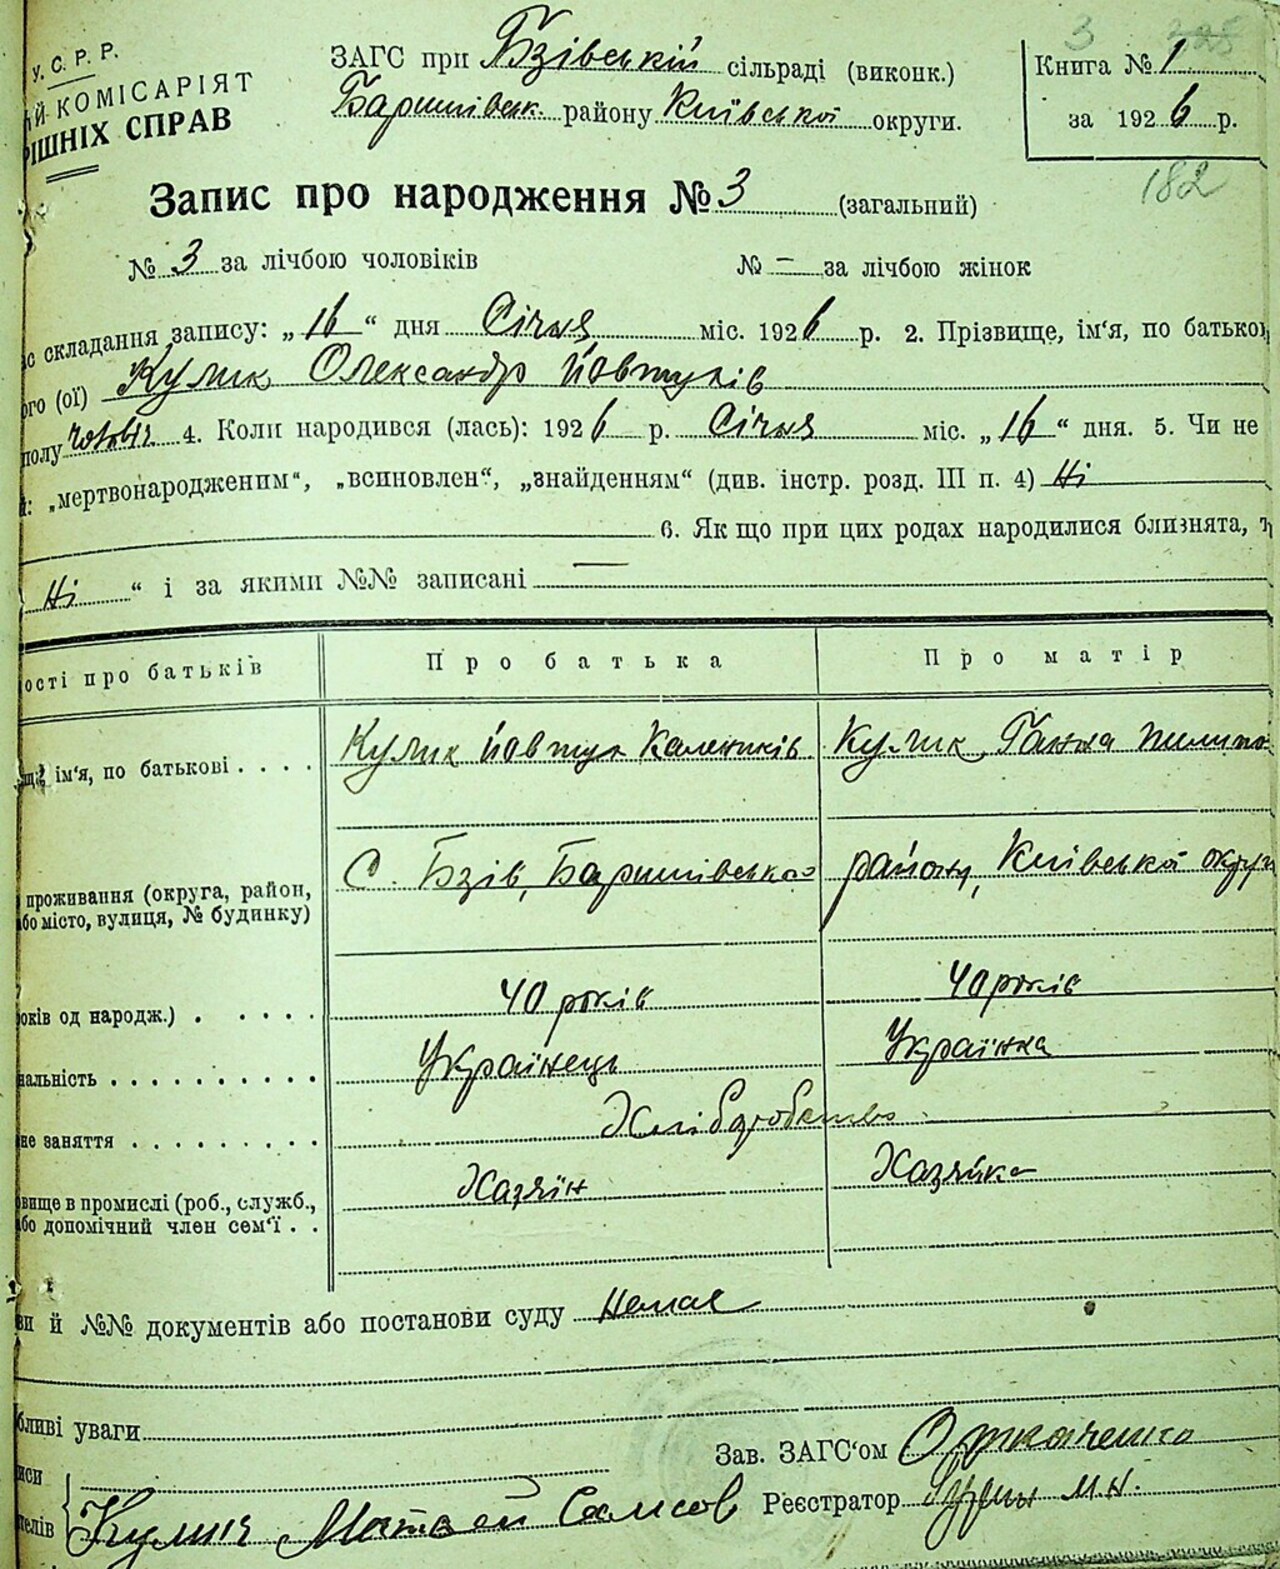 У. С. Р. Р.
ИЙ КОМІСАРІЯТ
РІШНІХ СПРАВ
ЗАГС при Бзівській сільраді (виконк.)
Баришівськ. району Київської округи.
3
Книга № 1
за 1926 р.
182
Запис про народження № 3 (загальний)
№ 3 за лічбою чоловіків № — за лічбою жінок
ас складання запису: „16“ дня Січня міс. 1926 р. 2. Прізвище, ім‘я, по батьков
ого (ої) Кулик Олександр Йовтухів
полу 4. Коли народився (лась): 1926 р. Січня міс. „16“ дня. 5. Чи не
: „мертвонародженим“, „всиновлен“, „знайденням“ (див. інстр. розд. III п. 4) Ні
6. Як що при цих родах народилися близнята,
Ні “ і за якими №№ записані —
ості про батьків Про батька Про матір
ім‘я, по батькові . . . . Кулик Йовтух Калеників Кулик Ганна Пилипо
проживання (округа, район, С. Бзів, Баришівського району, Київської округи
бо місто, вулиця, № будинку)
оків од народж.) . . . . . 40 років 40 років
нальність . . . . . . . . . . Українець Українка
не заняття . . . . . . . . . Хліборобство
овище в промислі (роб., служб., Хазяїн Хазяйка
бо допомічний член сем‘ї . .
ви й №№ документів або постанови суду Немає
бливі уваги
Зав. ЗАГС‘ом
иси
телів Кулик Матвей Самсов Реєстратор М.Н.